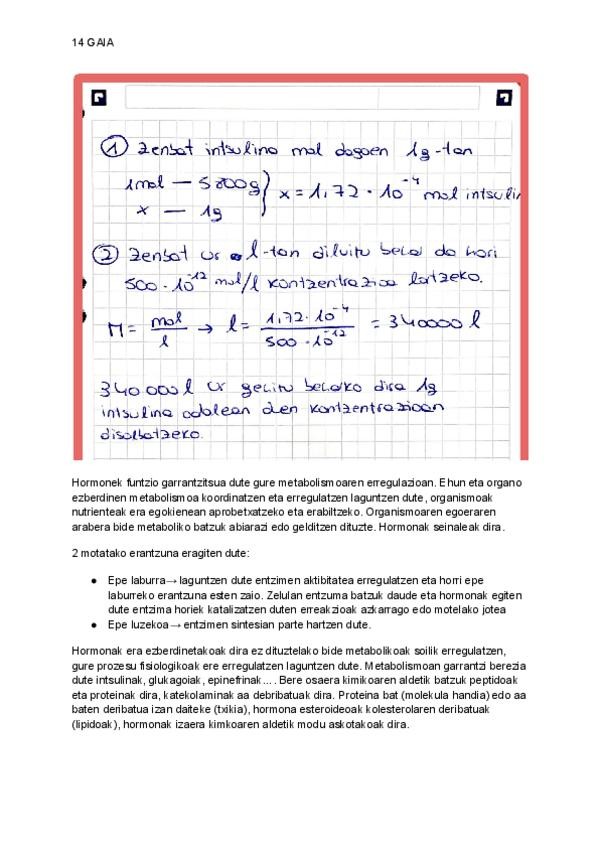 14 GAIA
① Zenbat intsulina mol dagoen 1g-tan
1mol — 5800g } x = 1,72 · 10⁻⁴ mol intsulin
x — 1g
② Zenbat ur l-tan diluitu behar da hori
500 · 10⁻¹² mol/l kontzentrazioa lortzeko.
M = mol/l → l = 1,72 · 10⁻⁴ / 500 · 10⁻¹² = 340000 l
340 000 l ur gehitu beharko dira 1g
intsulina odolean den kontzentrazioan
disolbatzeko.
Hormonek funtzio garrantzitsua dute gure metabolismoaren erregulazioan. Ehun eta organo
ezberdinen metabolismoa koordinatzen eta erregulatzen laguntzen dute, organismoak
nutrienteak era egokienean aprobetxatzeko eta erabiltzeko. Organismoaren egoeraren
arabera bide metaboliko batzuk abiarazi edo gelditzen dituzte. Hormonak seinaleak dira.
2 motatako erantzuna eragiten dute:
● Epe laburra→ laguntzen dute entzimen aktibitatea erregulatzen eta horri epe
laburreko erantzuna esten zaio. Zelulan entzuma batzuk daude eta hormonak egiten
dute entzima horiek katalizatzen duten erreakzioak azkarrago edo motelako jotea
● Epe luzekoa→ entzimen sintesian parte hartzen dute.
Hormonak era ezberdinetakoak dira ez dituztelako bide metabolikoak soilik erregulatzen,
gure prozesu fisiologikoak ere erregulatzen laguntzen dute. Metabolismoan garrantzi berezia
dute intsulinak, glukagoiak, epinefrinak... . Bere osaera kimikoaren aldetik batzuk peptidoak
eta proteinak dira, katekolaminak aa debribatuak dira. Proteina bat (molekula handia) edo aa
baten deribatua izan daiteke (txikia), hormona esteroideoak kolesterolaren deribatuak
(lipidoak), hormonak izaera kimkoaren aldetik modu askotakoak dira.